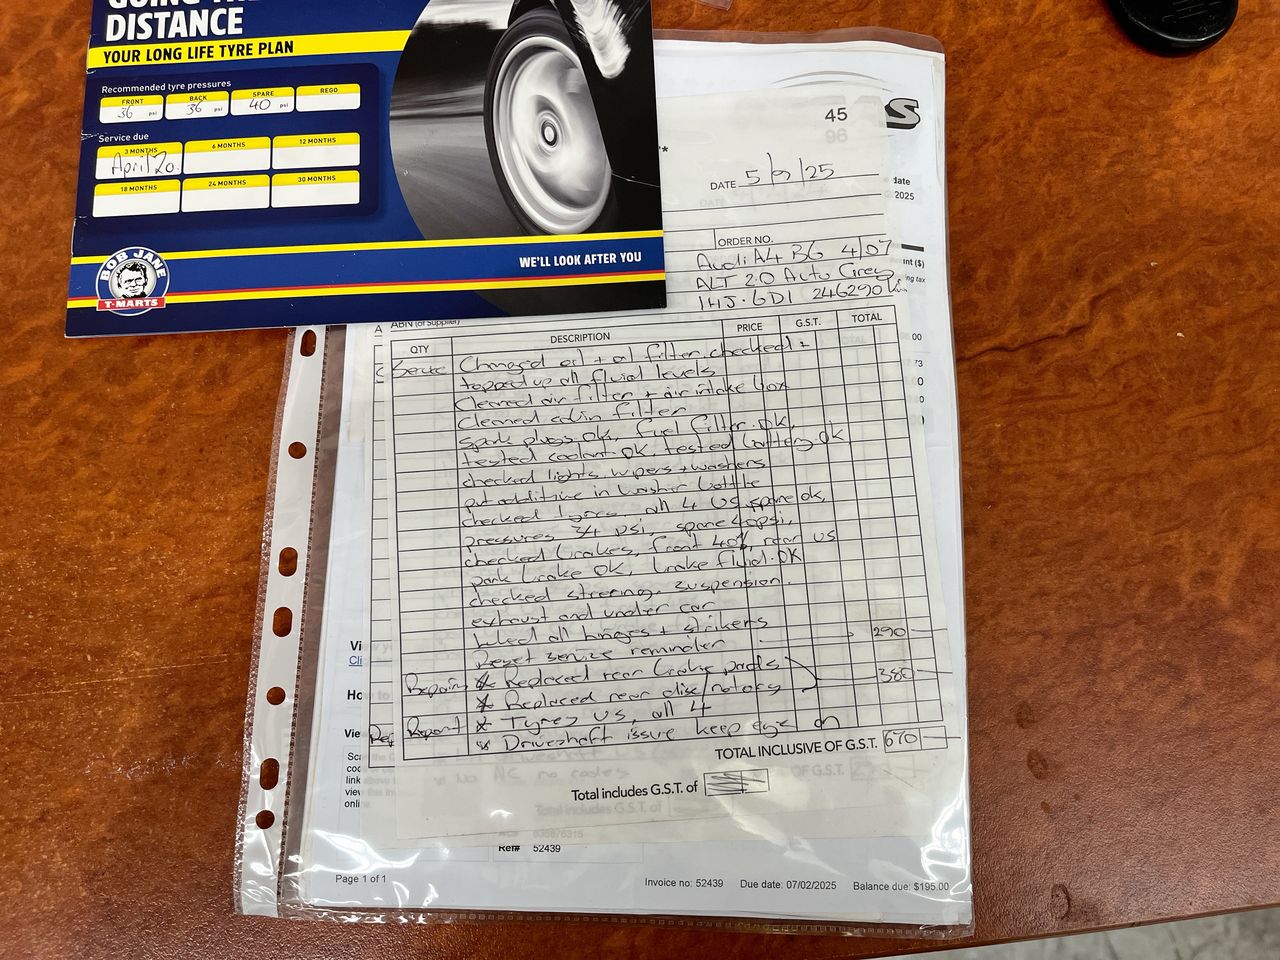 DISTANCE
YOUR LONG LIFE TYRE PLAN
Recommended tyre pressures
FRONT BACK SPARE REGO
36 psi 36 psi 40 psi
Service due
3 MONTHS 6 MONTHS 12 MONTHS
April 20
18 MONTHS 24 MONTHS 30 MONTHS
BOB JANE
T-MARTS
WE'LL LOOK AFTER YOU
45
96
DATE 5/9/25
date
2025
ORDER NO.
Audi A4 B6 4/07
ALT 2.0 Auto Grey
1HJ·6DI 246290
ABN (of Supplier)
QTY DESCRIPTION PRICE G.S.T. TOTAL
Changed oil + oil filter, checked +
topped up all fluid levels
Cleaned air filter + air intake box
Cleaned cabin filter
spark plugs ok, fuel filter OK,
tested coolant OK, tested battery OK
checked lights, wipers + washers
put additive in washer bottle
checked tyres, all 4 US, spare ok,
pressures 34 psi, spare 40psi,
checked brakes, front 40%, rear US
park brake OK, brake fluid OK
checked steering, suspension
exhaust and under car
lubed all hinges + strikers
Reset service reminder 290
Repairs * Replaced rear brake pads
* Replaced rear disc rotors 380
Report * Tyres US, all 4
* Driveshaft issue keep eye on
TOTAL INCLUSIVE OF G.S.T. 670
Total includes G.S.T. of
Ref# 52439
Page 1 of 1
Invoice no: 52439 Due date: 07/02/2025 Balance due: $195.00